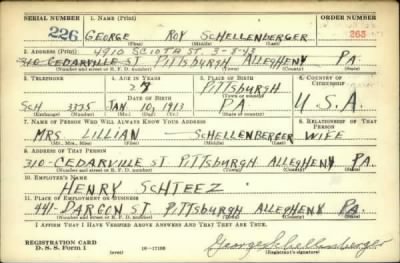 SERIAL NUMBER 1. NAME (Print) ORDER NUMBER
226 GEORGE ROY SCHELLENBERGER 265
(First) (Middle) (Last)
2. ADDRESS (Print) 4910 SCIOTA ST. 3-8-43
310-CEDARVILLE ST PITTSBURGH ALLEGHENY PA.
(Number and street or R. F. D. number) (Town) (County) (State)
3. TELEPHONE 4. AGE IN YEARS 5. PLACE OF BIRTH 6. COUNTRY OF CITIZENSHIP
27 PITTSBURGH
DATE OF BIRTH (Town or county)
SCH 3375 JAN 10, 1913 PA U.S.A.
(Exchange) (Number) (Mo.) (Day) (Yr.) (State or country)
7. NAME OF PERSON WHO WILL ALWAYS KNOW YOUR ADDRESS 8. RELATIONSHIP OF THAT PERSON
MRS LILLIAN SCHELLENBERGER WIFE
(Mr., Mrs., Miss) (First) (Middle) (Last)
9. ADDRESS OF THAT PERSON
310-CEDARVILLE ST PITTSBURGH ALLEGHENY PA.
(Number and street or R. F. D. number) (Town) (County) (State)
10. EMPLOYER'S NAME
HENRY SCHTEEZ
11. PLACE OF EMPLOYMENT OR BUSINESS
441-DARGON ST PITTSBURGH ALLEGHENY PA.
(Number and street or R. F. D. number) (Town) (County) (State)
I AFFIRM THAT I HAVE VERIFIED ABOVE ANSWERS AND THAT THEY ARE TRUE.
REGISTRATION CARD George Schellenberger
D. S. S. Form 1 (over) 16-17105 (Registrant's signature)